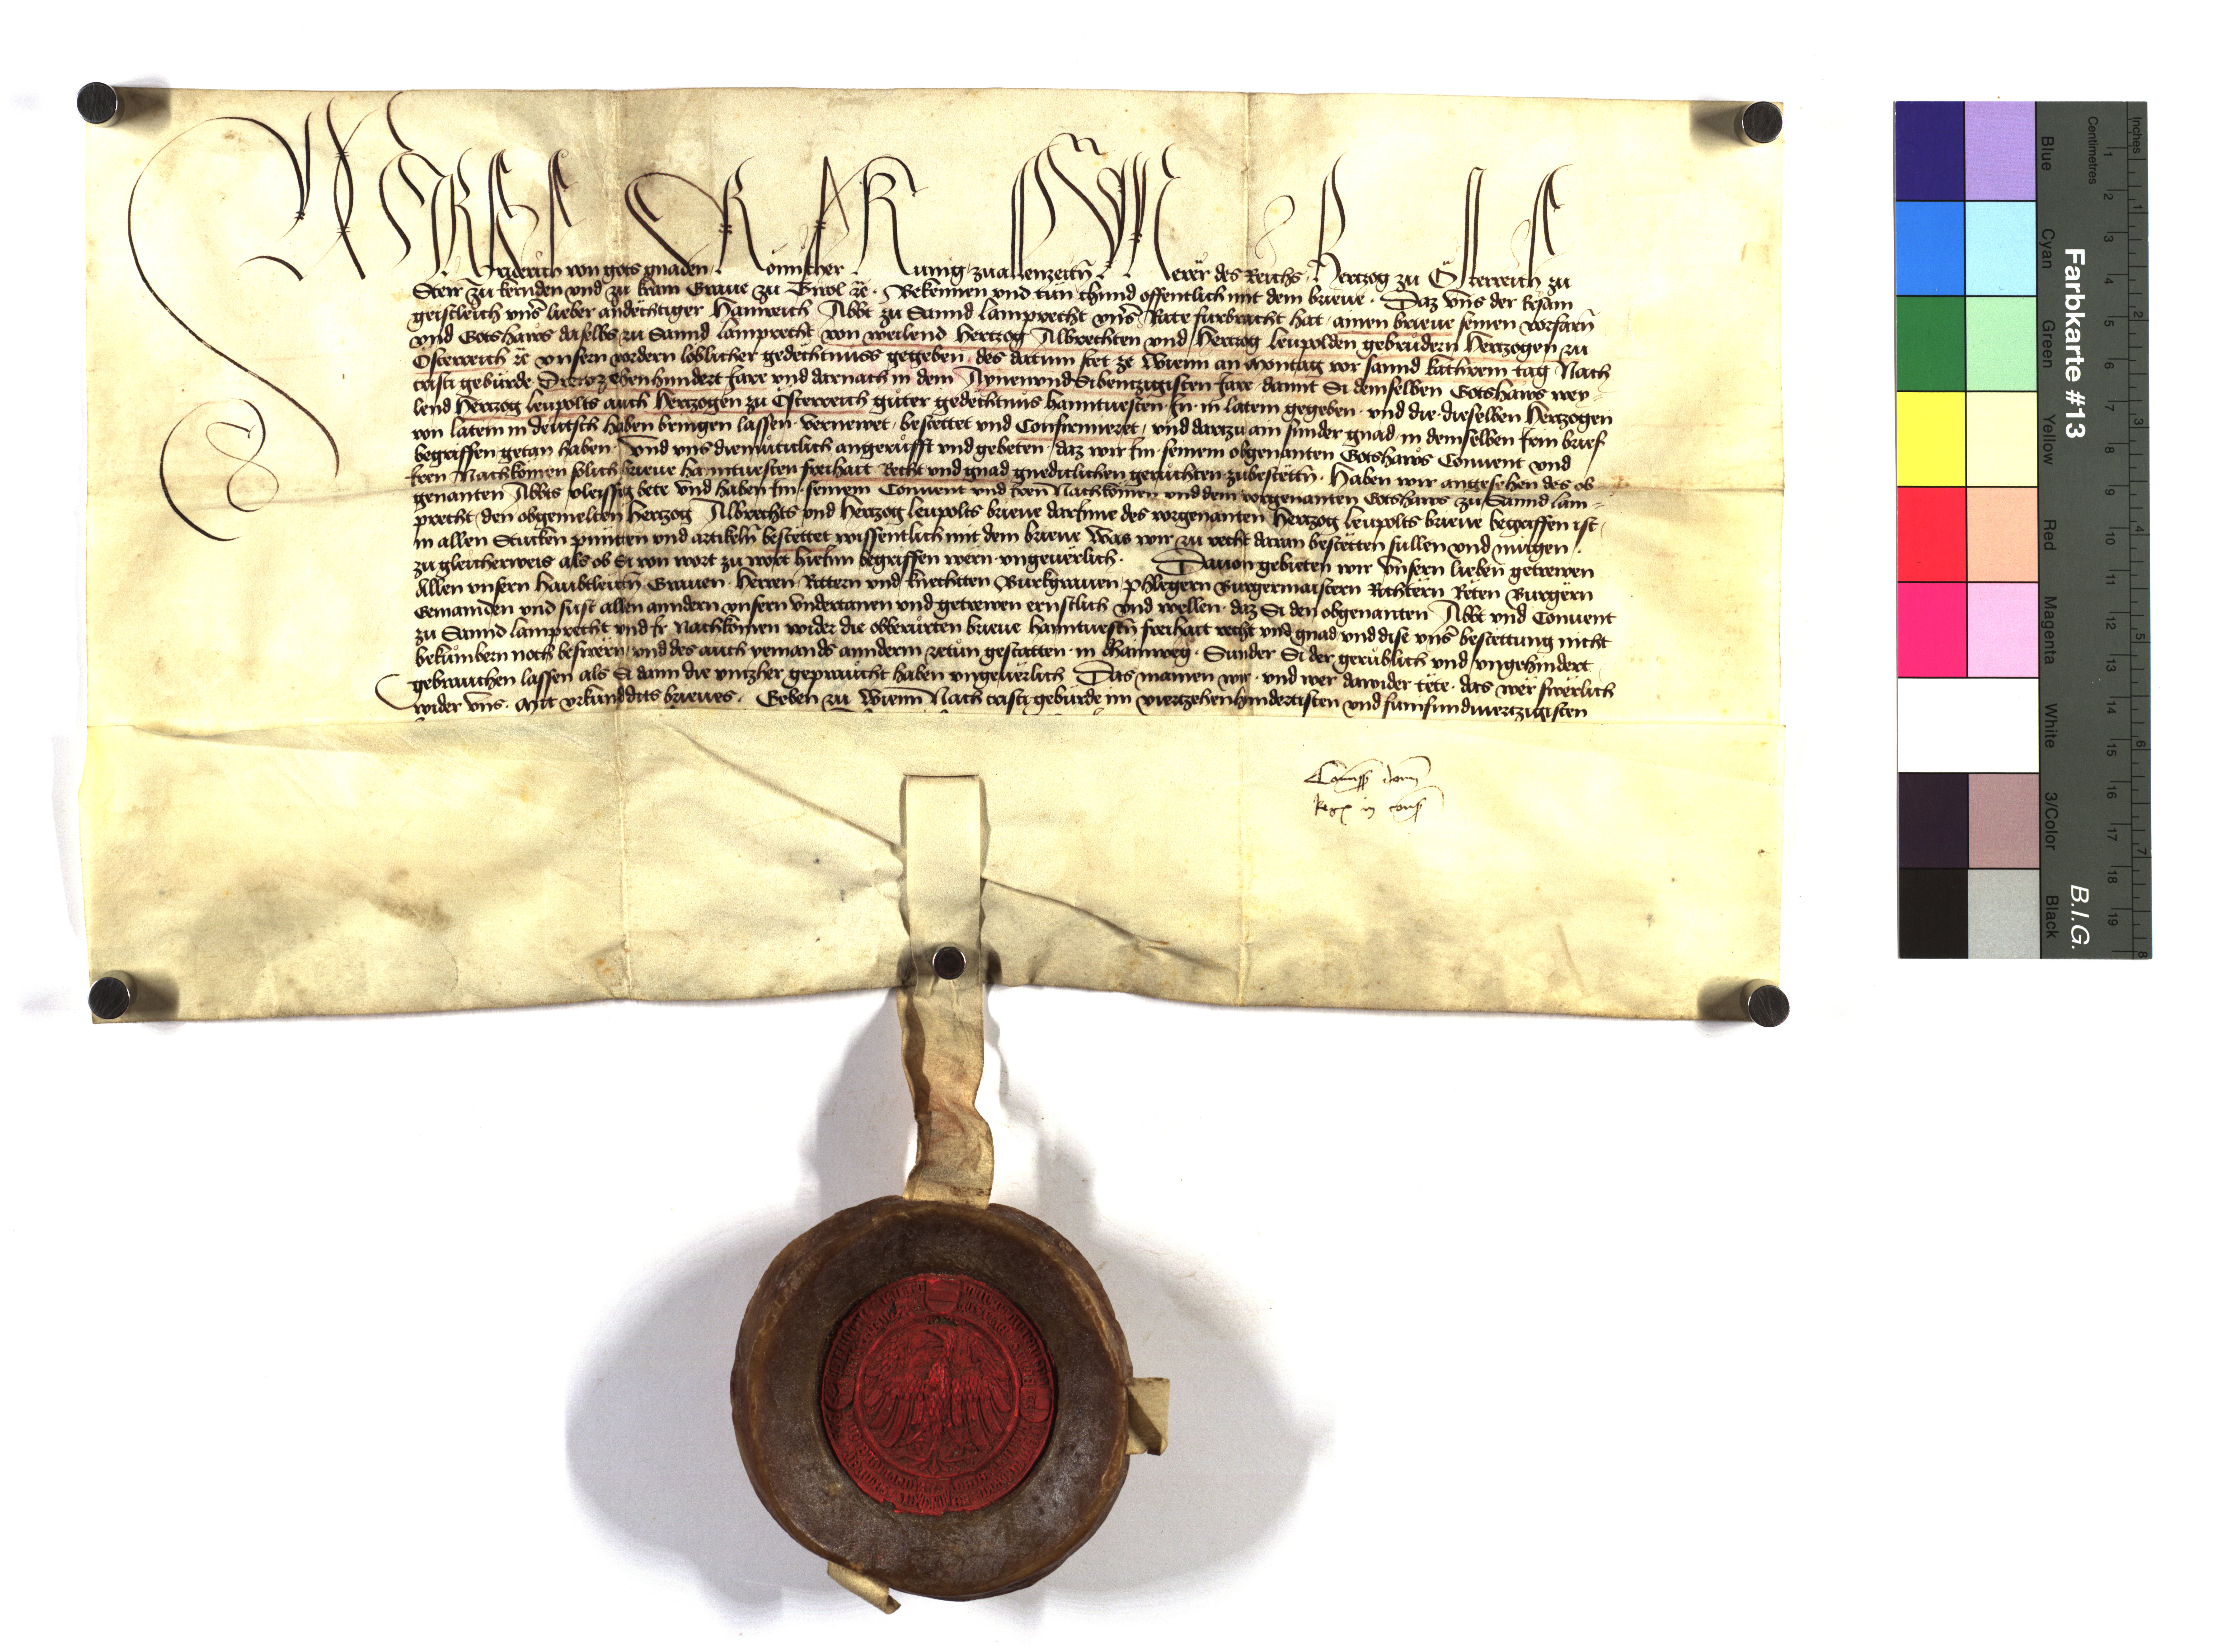 Wir Friderich von gots gnaden Römischer Kunig zuallenzeitn Merer des Reichs Hertzog zu Österreich zu
Steir zu kernden vnd zu krain Graue zu Tirol etc. Bekennen vnd tün chund offentlich mit dem brieue. Daz vns der Ersam
geistleich vnser lieber andechtiger Hainreich Abbt zu Sannd Lamprecht vnser Rate furbracht hat ainen brieue seinen vorfarn
vnd Gotshaws daselbs zu Sannd Lamprecht von weilend Hertzog Albrechten vnd Hertzog Leupolden gebrüdern Hertzogen zu
Österreich etc vnsern vordern löblicher gedechtnuss gegeben des datum stet ze Wienn an Montag vor sannd kathrein tag Nach
cristi gebürde Drewzehenhundert Jare vnd darnach in dem Aynenvnd Sibentzigisten Jare damit Si demselben Gotshaws wey-
lend Hertzog Leupolts auch Hertzogen zu Österreich güter gedechtnüs hanntuesten In in latein gegeben vnd die dieselben Hertzogen
von latein in deutsch haben bringen lassen vernewet bestettet vnd Confirmieret vnd dartzu ain sunder gnad in demselben Irm brief
begriffen getan haben Vnd vns diemüticlich angerüfft vnd gebeten daz wir Im seinem obgenanten Gotshaws Conuent vnd
Iren Nachkomen solich brieue hanntuesten freihait Recht vnd gnad gnediclichen geruchten zubestettn. Haben wir angesehen des ob
genanten Abbts vleissig bete vnd haben Im seinem Conuent vnd Iren Nachkomen vnd dem vorgenanten Gotshaws zu Sannd lam-
precht den obgemelten Hertzog Albrechts vnd Hertzog Leupolts brieue darInne des vorgenanten Hertzog Leupolts brieue begriffen ist
in allen Stucken punten vnd artikeln bestettet wissentlich mit dem brieue Was wir zu recht daran bestetten sullen vnd mügen
zu gleicherweis als ob Si von wort zu wort hieInn begriffen wern vngeuerlich. Dauon gebieten wir vnsern lieben getrewen
Allen vnsern haubtleutn Grauen Herren Rittern vnd knechten Burkgrauen phlegern Burgermaistern Richtern Reten Burgern
Gemainden vnd sust allen anndern vnsern vndertanen vnd getrewen ernstlich vnd wellen daz Si den obgenanten Abbt vnd Conuent
zu Sannd lamprecht vnd Ir Nachkomen wider die obberürten brieue hanntuestn freihait recht vnd gnad vnd dise vnser bestettung nicht
bekümbern noch beswern vnd des auch yemands annderm zetün gestatten in dhainweg. Sunder Si der gerüblich vnd vngehindert
gebrauchen lassen als Si dann die vntzher gepraucht haben vngeuerlich Das mainen wir vnd wer dawider tete das wer swerlich
wider vns. Mit vrkund ditz brieues. Geben zu Wienn Nach cristi gebürde im viertzehenhundertisten vnd fumfundviertzigisten
Farbkarte #13
B.I.G.
Inches
Centimetres
Blue
Cyan
Green
Yellow
Red
Magenta
White
3/Color
Black
1 2 3 4 5 6 7 8 9 10 11 12 13 14 15 16 17 18 19
1 2 3 4 5 6 7 8